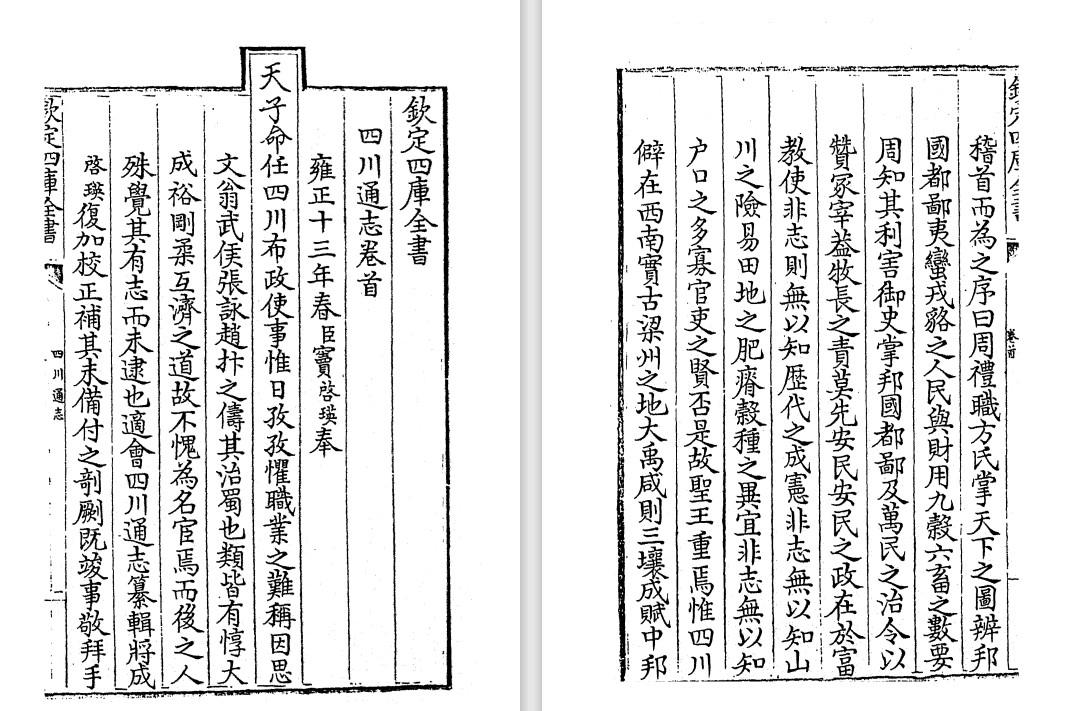 欽定四庫全書
四川通志卷首
雍正十三年春臣竇啓瑛奉
天子命任四川布政使事惟日孜孜懼職業之難稱因思
文翁武侯張詠趙抃之儔其治蜀也類皆有惇大
成裕剛柔互濟之道故不愧為名宦焉而後之人
殊覺其有志而未逮也適會四川通志纂輯將成
啓瑛復加校正補其未備付之剞劂既竣事敬拜手
欽定四庫全書
四川通志
欽定四庫全書
卷首
稽首而為之序曰周禮職方氏掌天下之圖辨邦
國都鄙夷蠻戎貉之人民與財用九穀六畜之數要
周知其利害御史掌邦國都鄙及萬民之治令以
贊冢宰葢牧長之責莫先安民安民之政在於富
教使非志則無以知歴代之成憲非志無以知山
川之險易田地之肥瘠穀種之異宜非志無以知
户口之多寡官吏之賢否是故聖王重焉惟四川
僻在西南實古梁州之地大禹咸則三壤成賦中邦